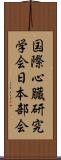 国際心臓研究
学会日本部会